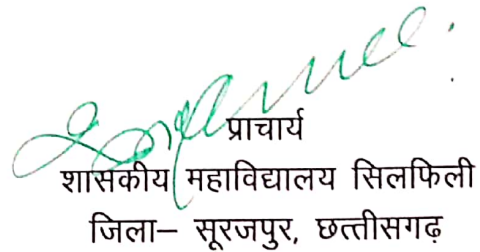 प्राचार्य
शासकीय महाविद्यालय सिलफिली
जिला– सूरजपुर, छत्तीसगढ़